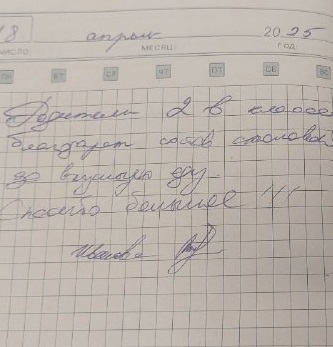 18 апрель 2025
ЧИСЛО МЕСЯЦ ГОД
ПН ВТ СР ЧТ ПТ СБ ВС
Родители 2 в класса
благодарят состав столовой
за вкусную еду.
Спасибо большое !!!
Иванова